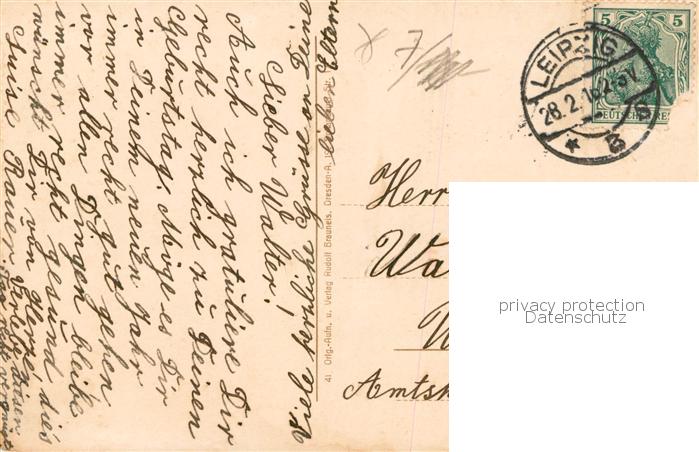 Lieber Walter!
Auch ich gratuliere Dir
recht herzlich zu Deinem
Geburtstag. Möge es Dir
in Deinem neuen Jahr
immer recht gut gehen
vor allen Dingen bleibe
immer recht gesund dies
wünscht Dir von Herzen
Luise Rauer
Viele Grüße
Deine lieben Eltern
41 Orig.-Aufn. u. Verlag Rudolf Brauneis, Dresden-A.
7
LEIPZIG
28.2.16.2-3V
* 8
5 5
DEUTSCHES REI
Herr
Wa
Amtsh
privacy protection
Datenschutz